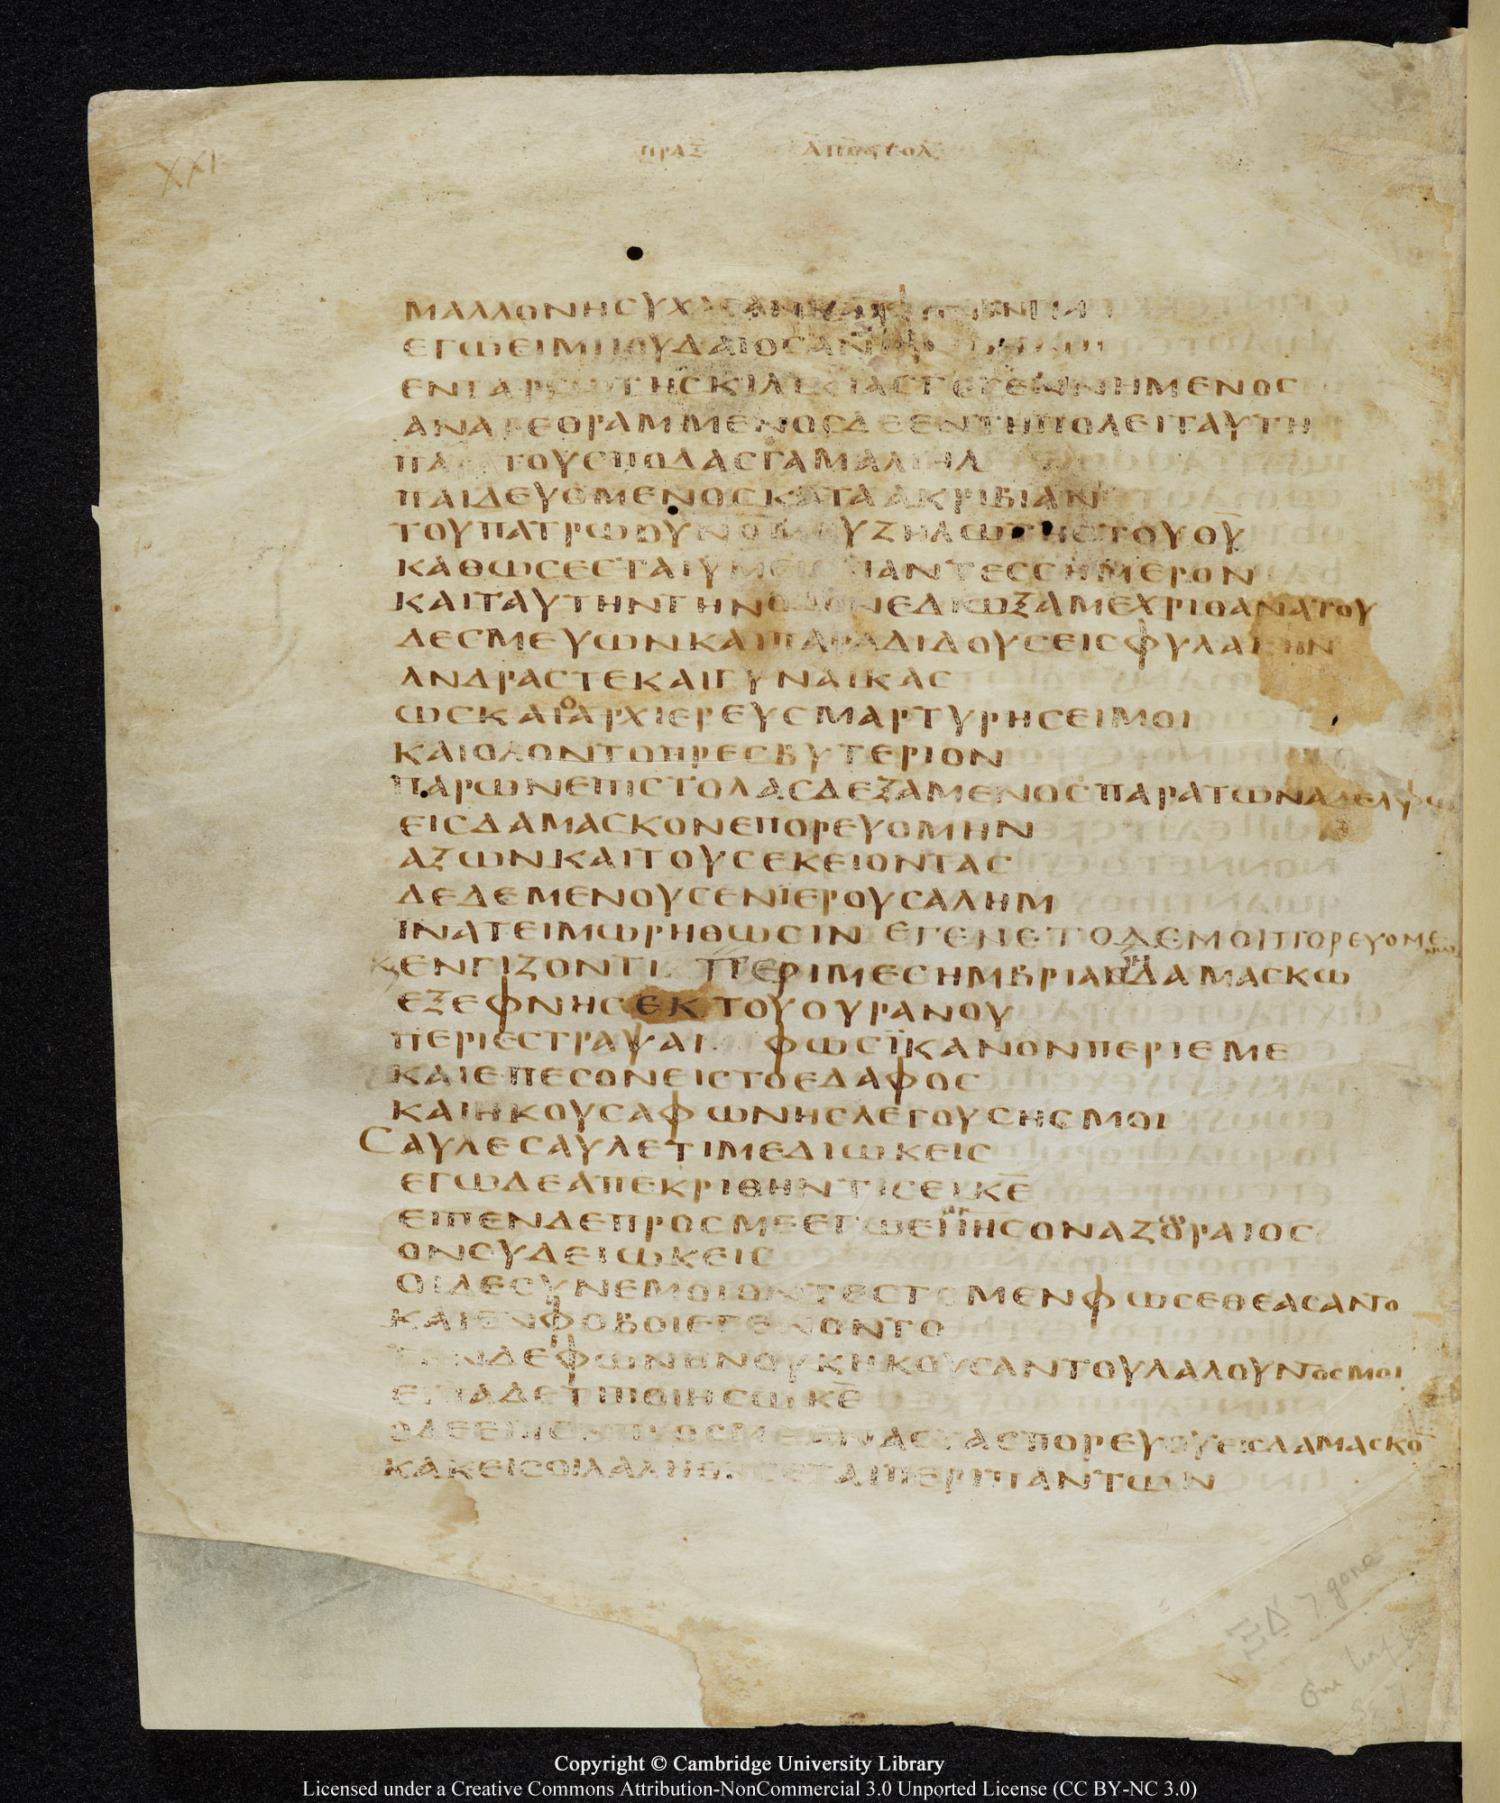 XXI
ΠΡΑΞ ΑΠΟΣΤΟΛ
ΜΑΛΛΟΝΗСΥΧΑСΑΝ
ΕΓΩΕΙΜΙΙΟΥΔΑΙΟСΑΝΗΡ
ΕΝΤΑΡСΩΤΗСΚΙΛΙΚΙΑСΓΕΓΕΝΝΗΜΕΝΟС
ΑΝΑΤΕΘΡΑΜΜΕΝΟСΔΕΕΝΤΗΠΟΛΕΙΤΑΥΤΗ
ΠΑΡΑΤΟΥСΠΟΔΑСΓΑΜΑΛΙΗΛ
ΠΑΙΔΕΥΟΜΕΝΟСΚΑΤΑΑΚΡΙΒΙΑΝ
ΤΟΥΠΑΤΡΩΟΥΝΟΜΟΥΖΗΛΩΤΗСΤΟΥΘΥ
ΚΑΘΩСΕСΤΑΙΥΜΕΙСΠΑΝΤΕССΗΜΕΡΟΝ
ΚΑΙΤΑΥΤΗΝΤΗΝΟΔΟΝΕΔΙΩΞΑΜΕΧΡΙΘΑΝΑΤΟΥ
ΔΕСΜΕΥΩΝΚΑΙΠΑΡΑΔΙΔΟΥСΕΙСΦΥΛΑΚΗΝ
ΑΝΔΡΑСΤΕΚΑΙΓΥΝΑΙΚΑС
ΩСΚΑΙΟΑΡΧΙΕΡΕΥСΜΑΡΤΥΡΗСΕΙΜΟΙ
ΚΑΙΟΛΟΝΤΟΠΡΕСΒΥΤΕΡΙΟΝ
ΠΑΡΩΝΕΠΙСΤΟΛΑСΔΕΞΑΜΕΝΟСΠΑΡΑΤΩΝΑΔΕΛΦΩ
ΕΙСΔΑΜΑСΚΟΝΕΠΟΡΕΥΟΜΗΝ
ΑΞΩΝΚΑΙΤΟΥСΕΚΕΙΟΝΤΑС
ΔΕΔΕΜΕΝΟΥСΕΝΙΕΡΟΥСΑΛΗΜ
ΙΝΑΤΕΙΜΩΡΗΘΩСΙΝ ΕΓΕΝΕΤΟΔΕΜΟΙΠΟΡΕΥΟΜΕ
ΕΝΓΙΖΟΝΤΙ ΠΕΡΙΜΕСΗΜΒΡΙΑΝΔΑΜΑСΚΩ
ΕΞΕΦΝΗСΕΚΤΟΥΟΥΡΑΝΟΥ
ΠΕΡΙΕСΤΡΑΨΑΙ ΦΩСΪΚΑΝΟΝΠΕΡΙΕΜΕ
ΚΑΙΕΠΕСΟΝΕΙСΤΟΕΔΑΦΟС
ΚΑΙΗΚΟΥСΑΦΩΝΗСΛΕΓΟΥСΗСΜΟΙ
СΑΥΛΕСΑΥΛΕΤΙΜΕΔΙΩΚΕΙС
ΕΓΩΔΕΑΠΕΚΡΙΘΗΝΤΙСΕΙΚΕ
ΕΙΠΕΝΔΕΠΡΟСΜΕΕΓΩΕΙΜΙΙΗСΟΝΑΖΟΡΑΙΟС
ΟΝСΥΔΕΙΩΚΕΙС
ΟΙΔΕСΥΝΕΜΟΙΟΝΤΕСΤΟΜΕΝΦΩСΕΘΕΑСΑΝΤΟ
ΚΑΙΕΝΦΟΒΟΙΕΓΕΝΟΝΤΟ
ΤΗΝΔΕΦΩΝΗΝΟΥΚΗΚΟΥСΑΝΤΟΥΛΑΛΟΥΝΤΟСΜΟΙ
ΕΙΠΑΔΕΤΙΠΟΙΗСΩΚΕ
ΟΔΕΕΙΠΕΝΠΡΟСΜΕΑΝΑСΤΑСΠΟΡΕΥΟΥΕΙСΔΑΜΑСΚΟ
ΚΑΚΕΙСΟΙΛΑΛΗΘΗСΕΤΑΙΠΕΡΙΠΑΝΤΩΝ
ΞΔ 7 gone
One leaf
Copyright © Cambridge University Library
Licensed under a Creative Commons Attribution-NonCommercial 3.0 Unported License (CC BY-NC 3.0)